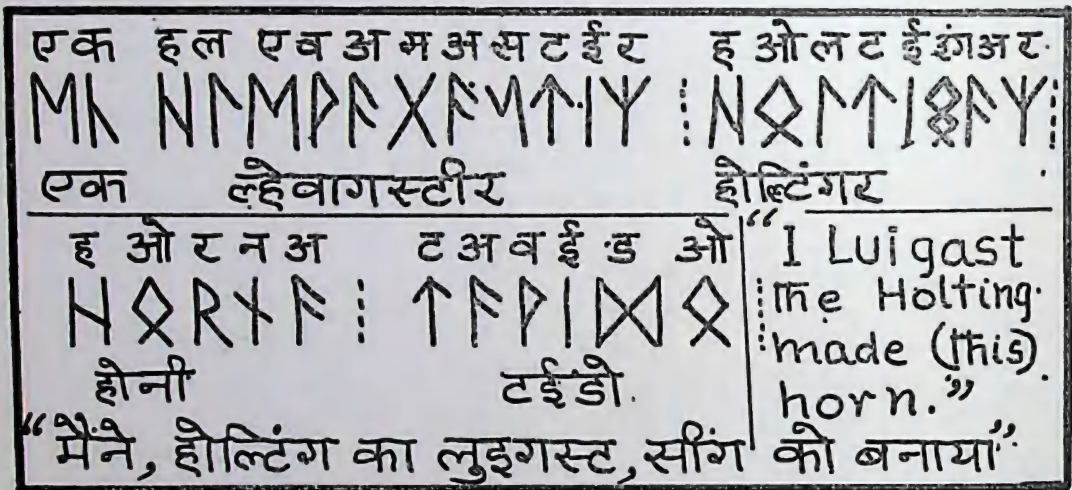 एक हल एव अ म अ स ट ई र ह ओ ल ट ई इंग अ र
ᛖᚲ ᚺᛚᛖᚹᚨᚷᚨᛊᛏᛁᛉ ⁝ ᚺᛟᛚᛏᛁᛜᚨᛉ ⁝
एक ल्हेवागस्टीर होल्टिंगर
ह ओ र न अ ट अ व ई ड ओ
ᚺᛟᚱᚾᚨ ⁝ ᛏᚨᚹᛁᛞᛟ ⁝
होर्ना टईडो.
“I Luigast
the Holting
made (this)
horn.”
“मैंने, होल्टिंग का लुइगस्ट, सींग को बनाया”